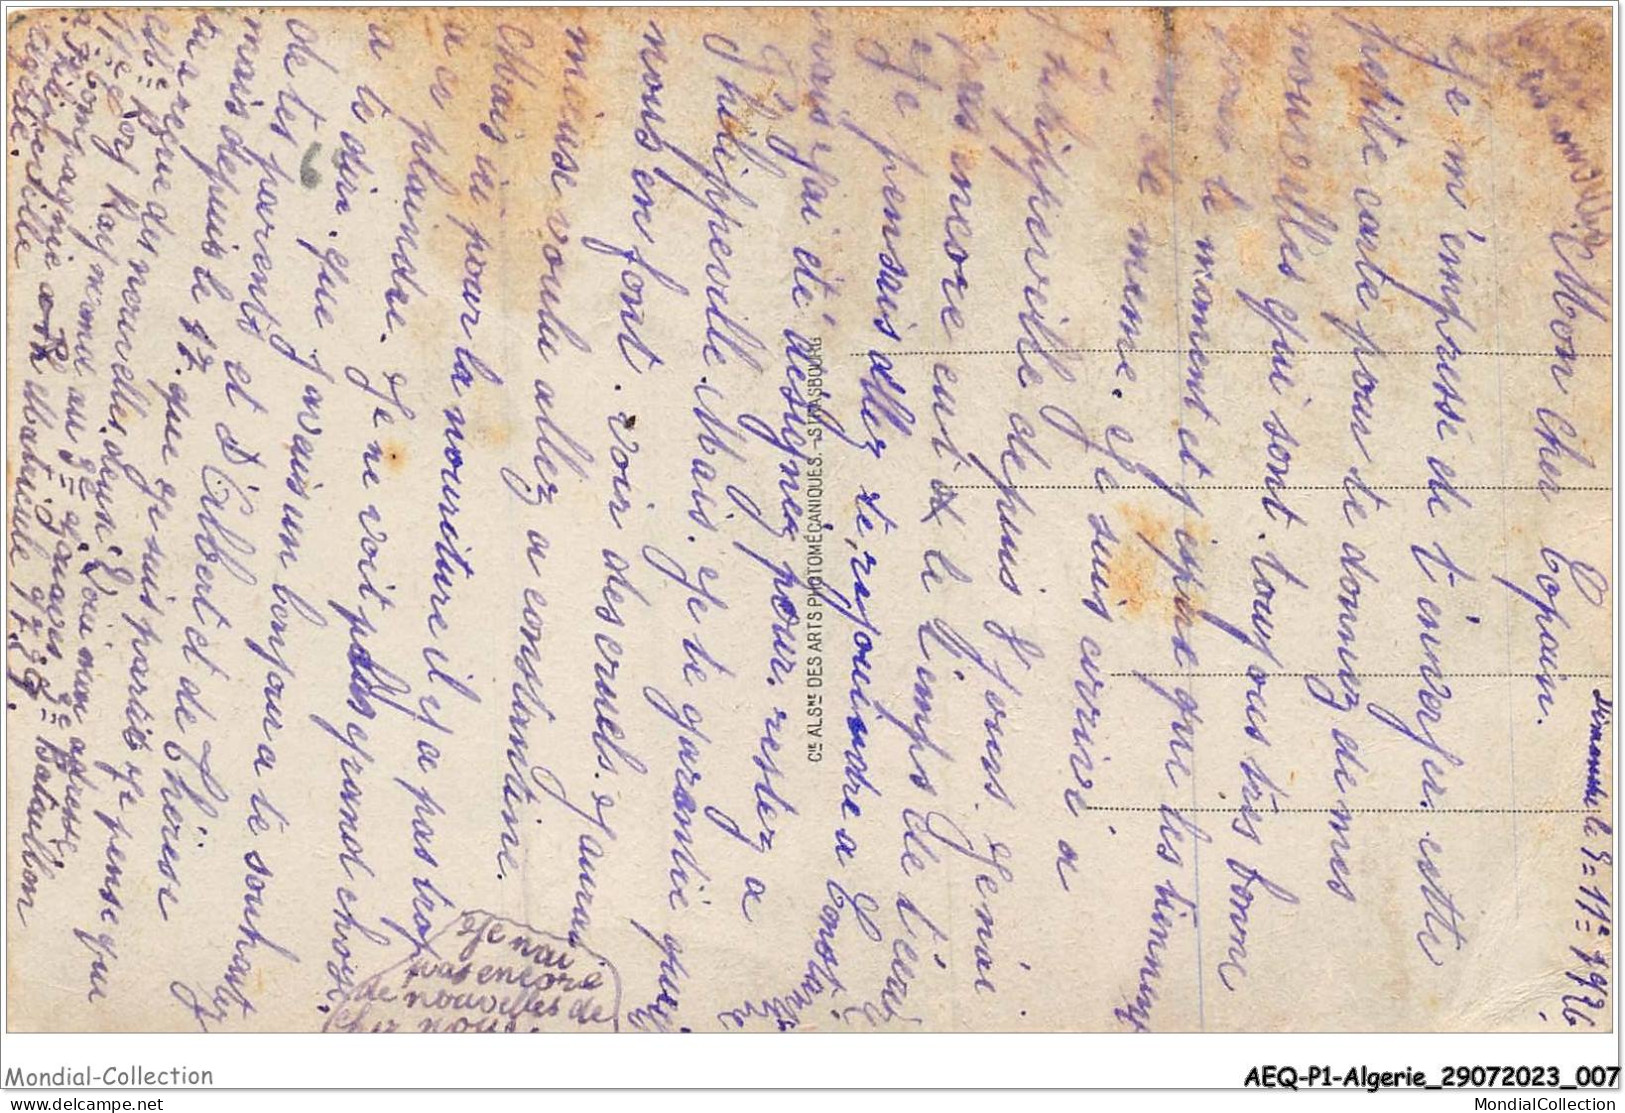 Dimanche le 9=11=1926.
Mon Cher Copain.
Je m'empresse de t'envoyer cette
petite carte pour te donnez de mes
nouvelles qui sont toujours très bonne
pour le moment et j'espère que les tiennent
de même. Je suis arrivé a
Philippeville depuis 8 jours. Je n'ai
pas encore eut le temps de t'écrire
Je pensais allez te, rejoindre a Const
mais j'ai été désignez pour. restez a
Philippeville. Mais. Je te garantie
nous en font. voir des cruels. J'aurai
mieuse voulu allez a constantine.
Mais ici pour la nouriture il y a pas trop
a ce plaindre. Je ne voit pas grand chose
a te dire. que j'avais un bonjour a te souhaitez
de tes parents et d'Albert et de Thérèse
mais depuis le 17. que je suis partit je pense que
tu a reçue des nouvelles d'eux. Voici mon adresse
Raymond au 3e Zouaves 2e
Compagnie a R Matricule 9729 = Bataillon
Philippeville
Algérie.
Je nai
pas encore
de nouvelles de
Cher nous.
6
Cie ALSne DES ARTS PHOTOMÉCANIQUES. – STRASBOURG
Mondial-Collection
AEQ-P1-Algerie_29072023_007
delcampe.net
MondialCollection